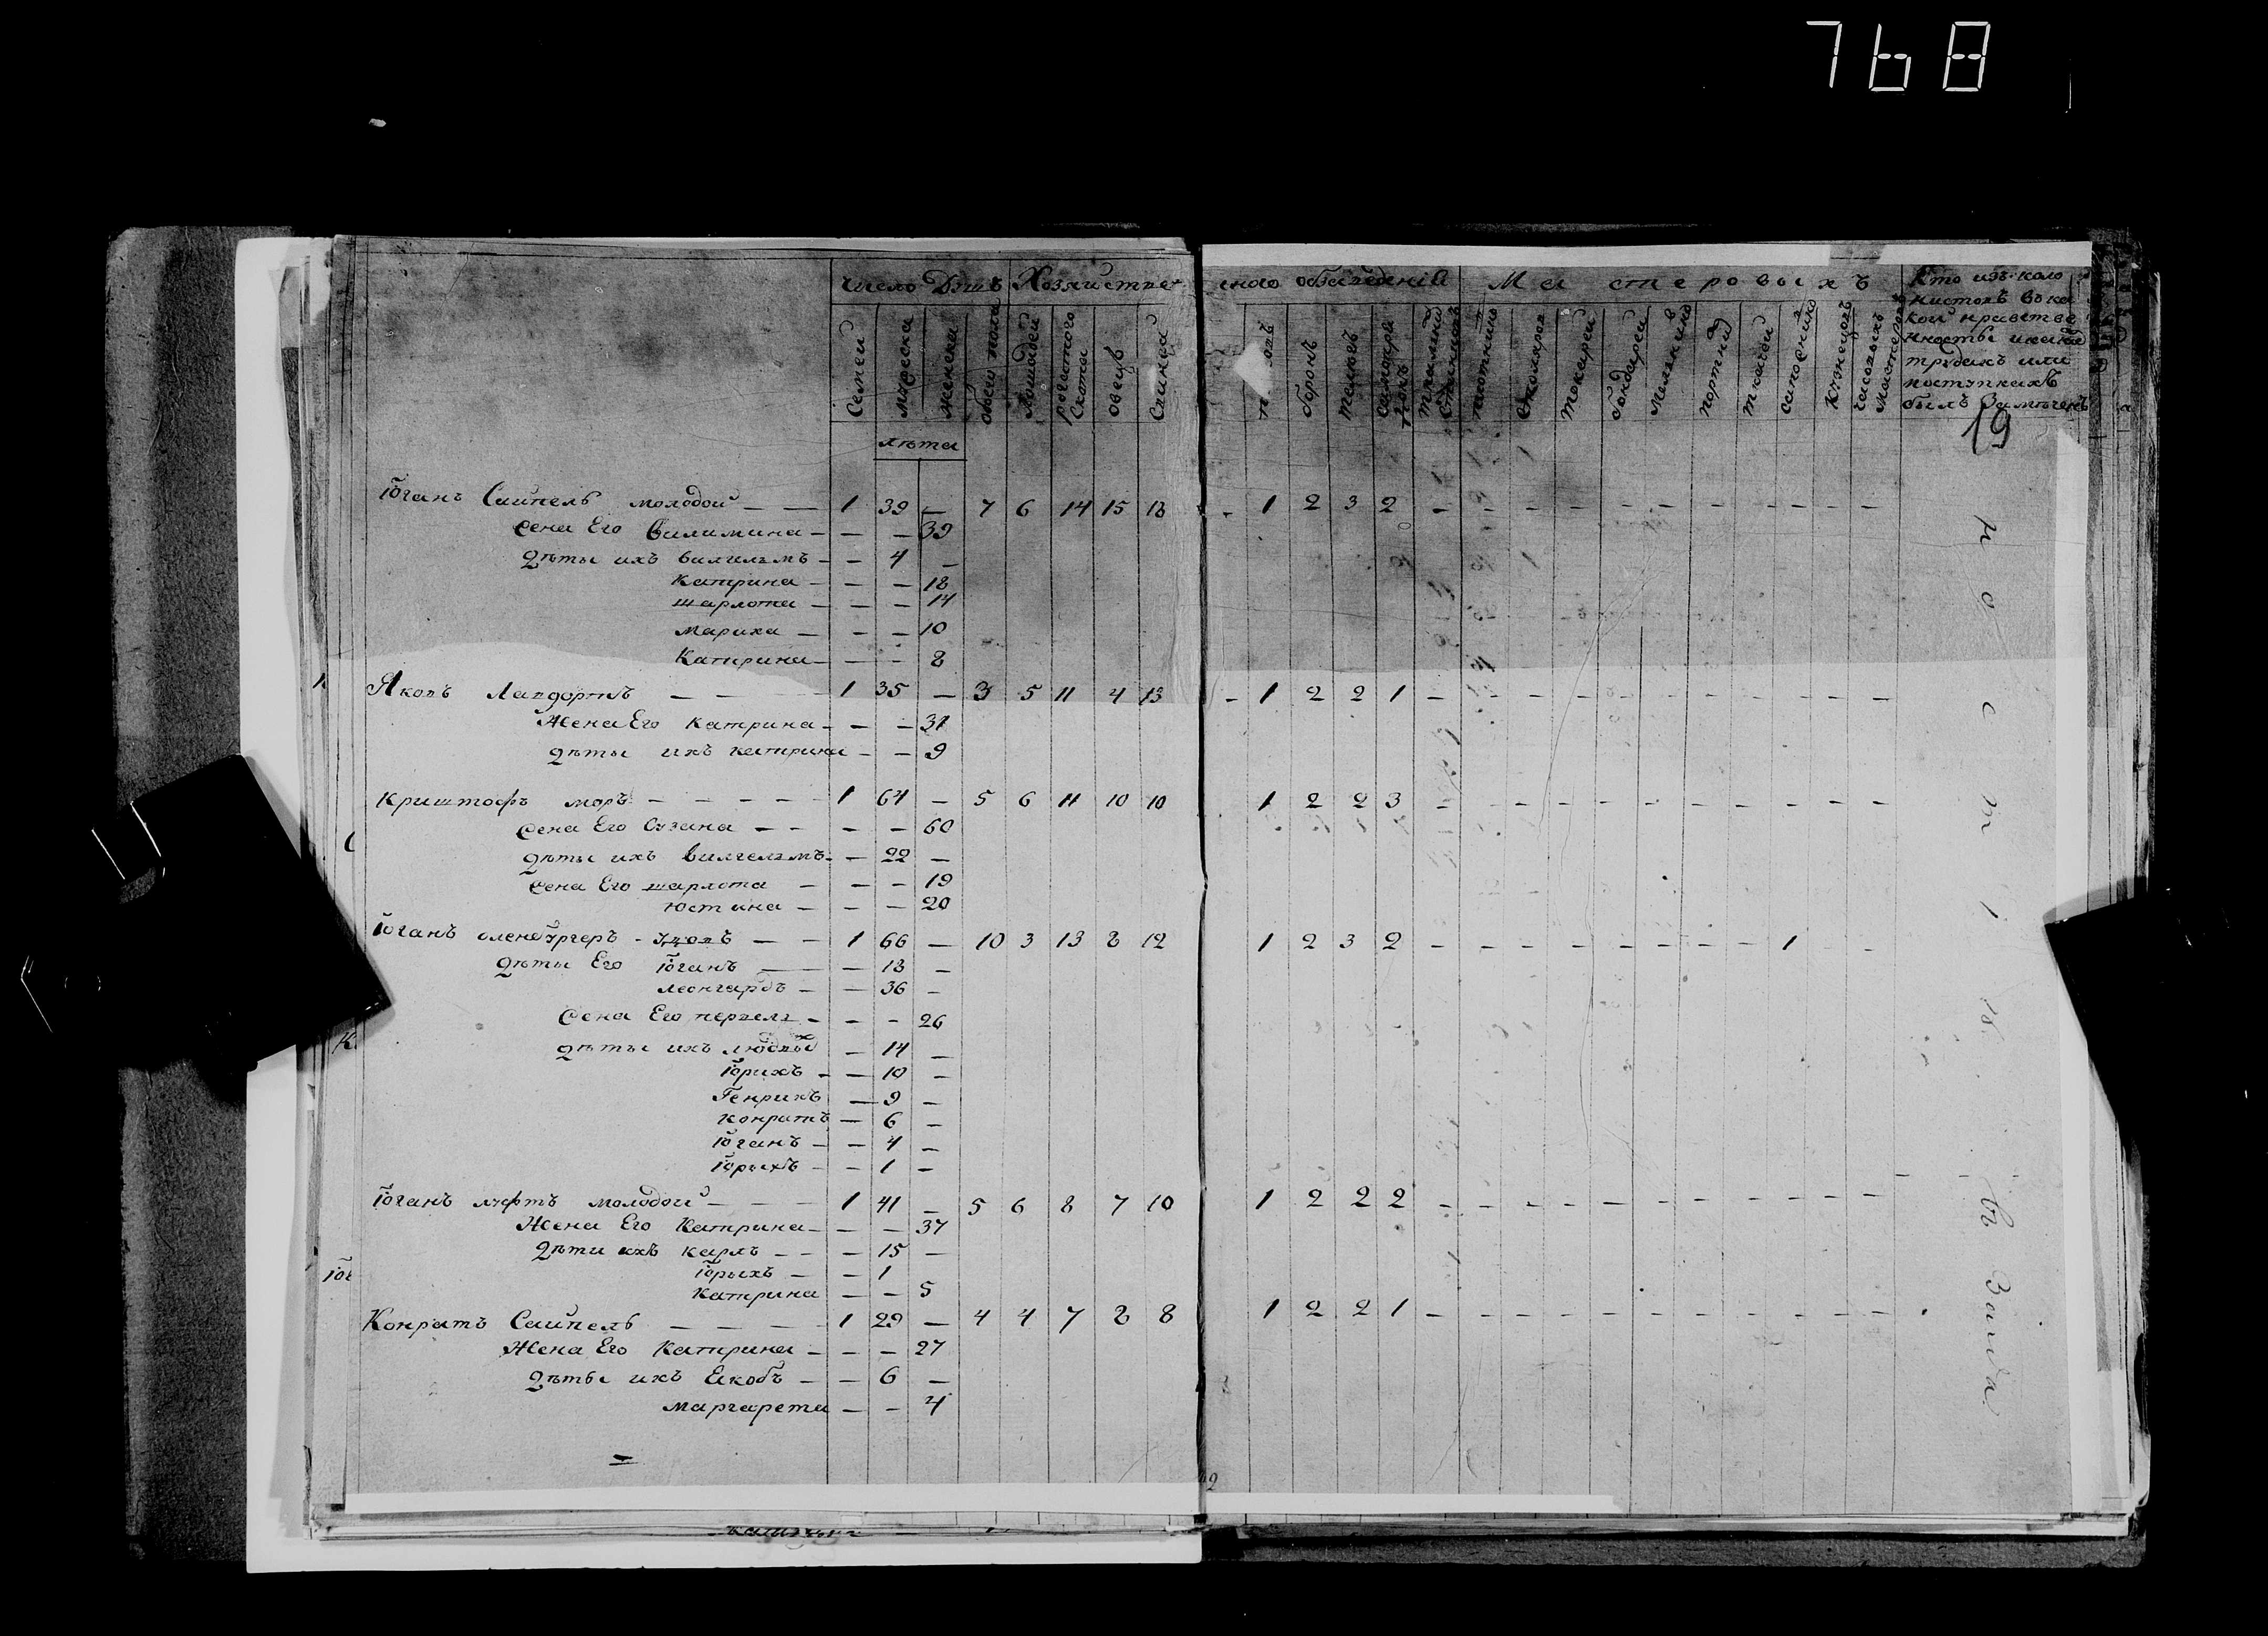 768
Число Душъ Хозяистве
нного обзаведенія Мастеровыхъ Кто изъ коло
нистовъ въ ка
кой нравстве
нности
трудахъ или
поступкахъ
былъ Замѣченъ
Семей мужеска женска обоего пола Лошадей рогатого Скота овецъ Свиней
боронъ телегъ самопрялокъ плотниковъ Столяровъ токарей бондарей мельниковъ портныхъ ткачей сапожниковъ Кузнецовъ часовыхъ мастеровъ
19
лѣта
Іоганъ Саипель молодой — — 1 39 — 7 6 14 15 18 - 1 2 3 2 - - - - - - - - - - -
жена Его Вилимина - - - 39
Дѣты ихъ вилгелмъ - - 4 -
Катрина - - - 18
шарлота - - - 14
Мариха - - - 10
Катрина - - - 8
Яковъ Лапдортъ — — 1 35 — 3 5 11 4 13 - 1 2 2 1 - - - - - - - - - - -
Жена Его Катрина - - - 31
дѣты ихъ катрина - - 9
Криштофъ моръ - - - - - 1 64 — 5 6 11 10 10 1 2 2 3 - - - - - - - - - - -
жена Его Сузана - - - - 60
дѣты ихъ вилгелмъ - - 22 —
жена Его шарлота - - - 19
Юстина - - - 20
Іоганъ оленбургеръ - удовъ — - 1 66 — 10 3 13 8 12 1 2 3 2 - - - - - - - - 1 - -
дѣты Его Іоганъ — - 18 —
леонгардъ - - 36 -
жена Его - - - 26
дѣты ихъ - 14 -
Іорихъ - - 10 -
Генрихъ — 9 -
конратъ - 6 -
Іоганъ - - 4 -
Іорыхъ - - 1 -
Іоганъ луфтъ молодой - - - 1 41 - 5 6 8 7 10 1 2 2 2 - - - - - - - - - - -
Жена Его Катрина - - - 37
Дѣти ихъ карлъ - - - 15 —
Іорыхъ - - 1
Катрина - - 5
Конратъ Саипель — — — 1 29 — 4 4 7 8 8 1 2 2 1 - - - - - - - - - - -
Жена Его Катрина - - - 27
дѣты ихъ Екобъ - - 6 —
маргарета - - 4